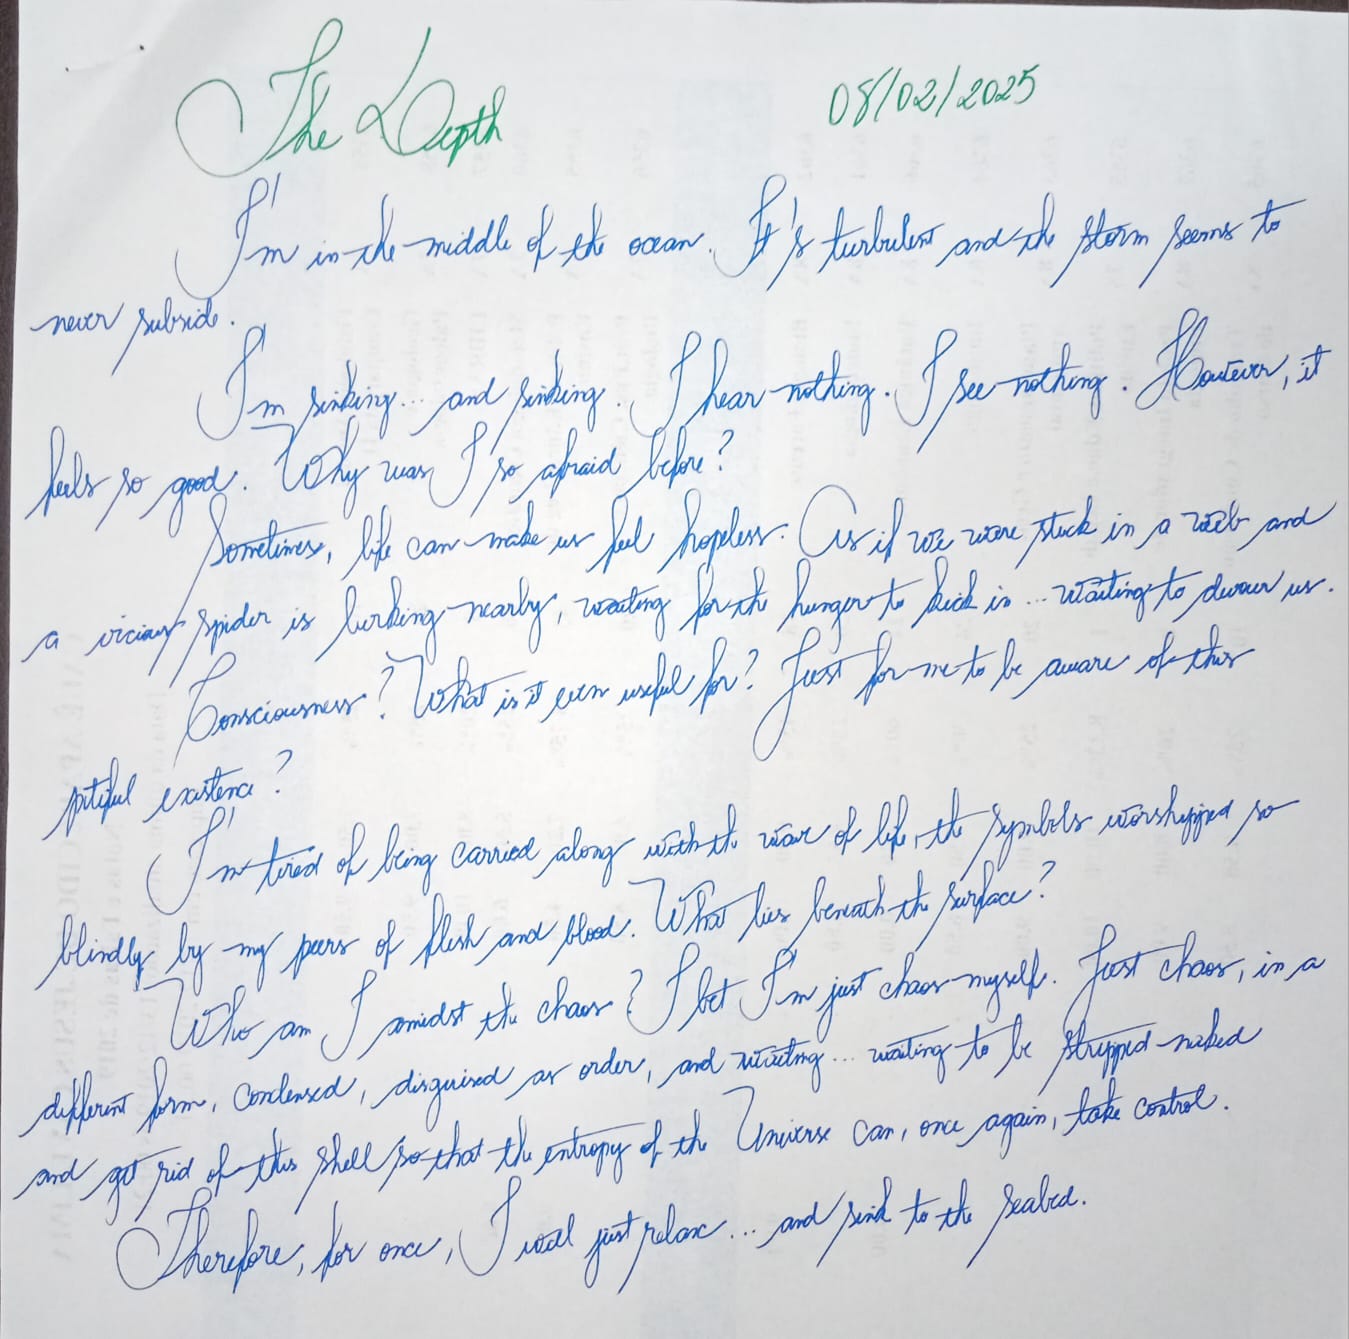 The Depth 08/02/2025
I'm in the middle of the ocean. It's turbulent and the storm seems to
never subside.
I'm sinking... and sinking. I hear nothing. I see nothing. However, it
feels so good. Why was I so afraid before?
Sometimes, life can make us feel hopeless. As if we were stuck in a web and
a vicious spider is lurking nearby, waiting for the hunger to kick in... waiting to devour us.
Consciousness? What is it even useful for? Just for me to be aware of this
pitiful existence?
I'm tired of being carried along with the wave of life, the symbols worshipped so
blindly by my peers of flesh and blood. What lies beneath the surface?
Who am I amidst the chaos? I bet I'm just chaos myself. Just chaos, in a
different form, condensed, disguised as order, and waiting... waiting to be stripped naked
and get rid of this shell so that the entropy of the Universe can, once again, take control.
Therefore, for once, I will just relax... and sink to the seabed.